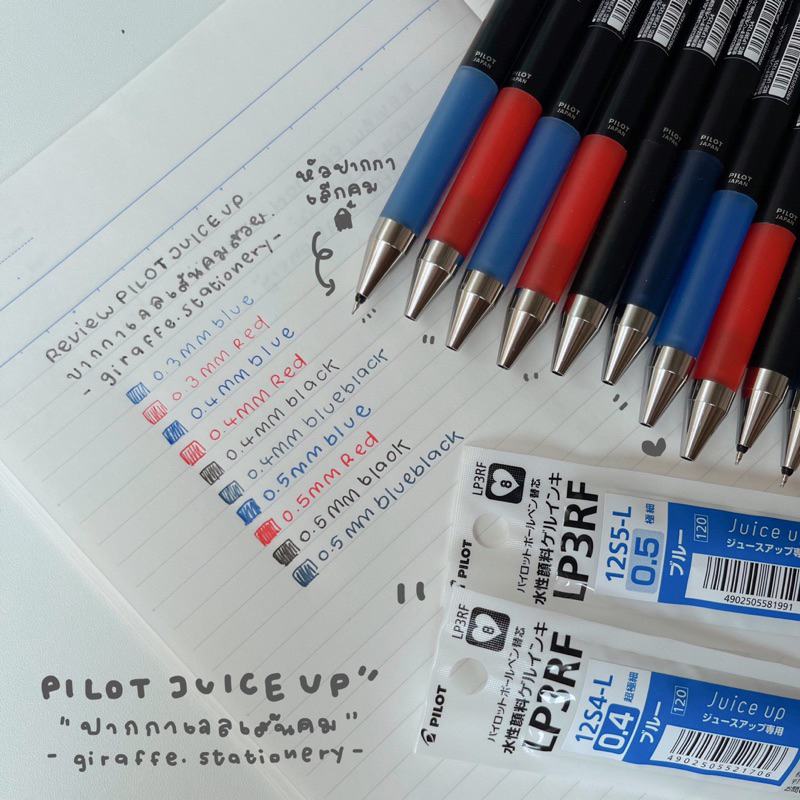 PILOT JAPAN
PILOT JAPAN
PILOT JAPAN
PILOT JAPAN
PILOT JAPAN
PILOT JAPAN
PILOT JAPAN
PILOT JAPAN
หัวปากกา
เล็กคม
Review PILOT JUICE UP
ปากกาเจลเส้นคมสวย.
- giraffe.stationery -
0.3mm blue
0.3mm Red
0.4mm blue
0.4mm Red
0.4mm black
0.4mm blueblack
0.5mm blue
0.5mm Red
0.5mm black
0.5mm blueblack
LP3RF
8
PILOT
パイロットボールペン替芯
水性顔料ゲルインキ
LP3RF
12S5-L
0.5 極細
ブルー
120
Juice up
ジュースアップ専用
4902505581991
LP3RF
8
PILOT
パイロットボールペン替芯
水性顔料ゲルインキ
LP3RF
12S4-L
0.4 超極細
ブルー
120
Juice up
ジュースアップ専用
4902505521706
PILOT JUICE UP
"ปากกาเจลเส้นคม"
- giraffe.stationery -